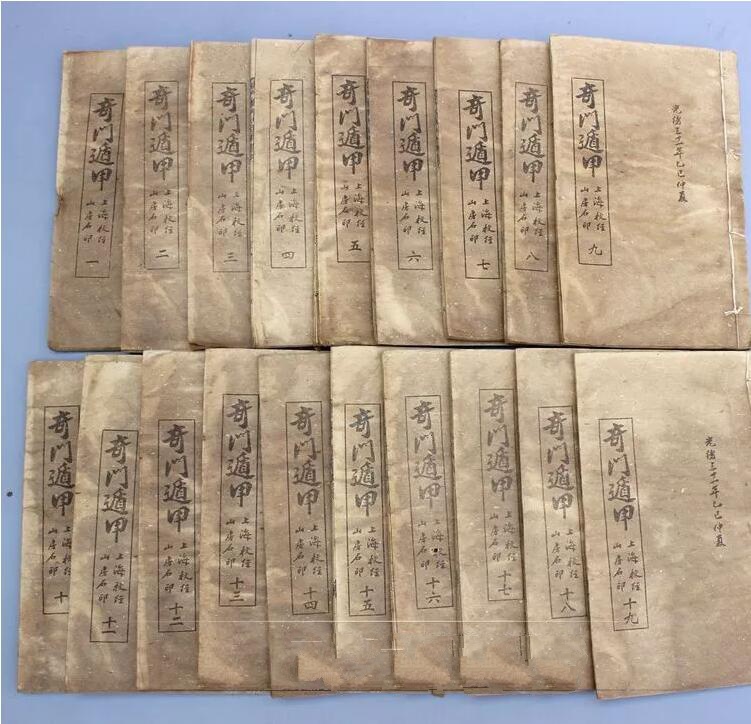 奇门遁甲
上海校经
山房石印
一
奇门遁甲
上海校经
山房石印
二
奇门遁甲
上海校经
山房石印
三
奇门遁甲
上海校经
山房石印
四
奇门遁甲
上海校经
山房石印
五
奇门遁甲
上海校经
山房石印
六
奇门遁甲
上海校经
山房石印
七
奇门遁甲
上海校经
山房石印
八
光绪三十一年乙巳仲夏
奇门遁甲
上海校经
山房石印
九
奇门遁甲
上海校经
山房石印
十
奇门遁甲
上海校经
山房石印
十一
奇门遁甲
上海校经
山房石印
十二
奇门遁甲
上海校经
山房石印
十三
奇门遁甲
上海校经
山房石印
十四
奇门遁甲
上海校经
山房石印
十五
奇门遁甲
上海校经
山房石印
十六
奇门遁甲
上海校经
山房石印
十七
奇门遁甲
上海校经
山房石印
十八
光绪三十一年乙巳仲夏
奇门遁甲
上海校经
山房石印
十九